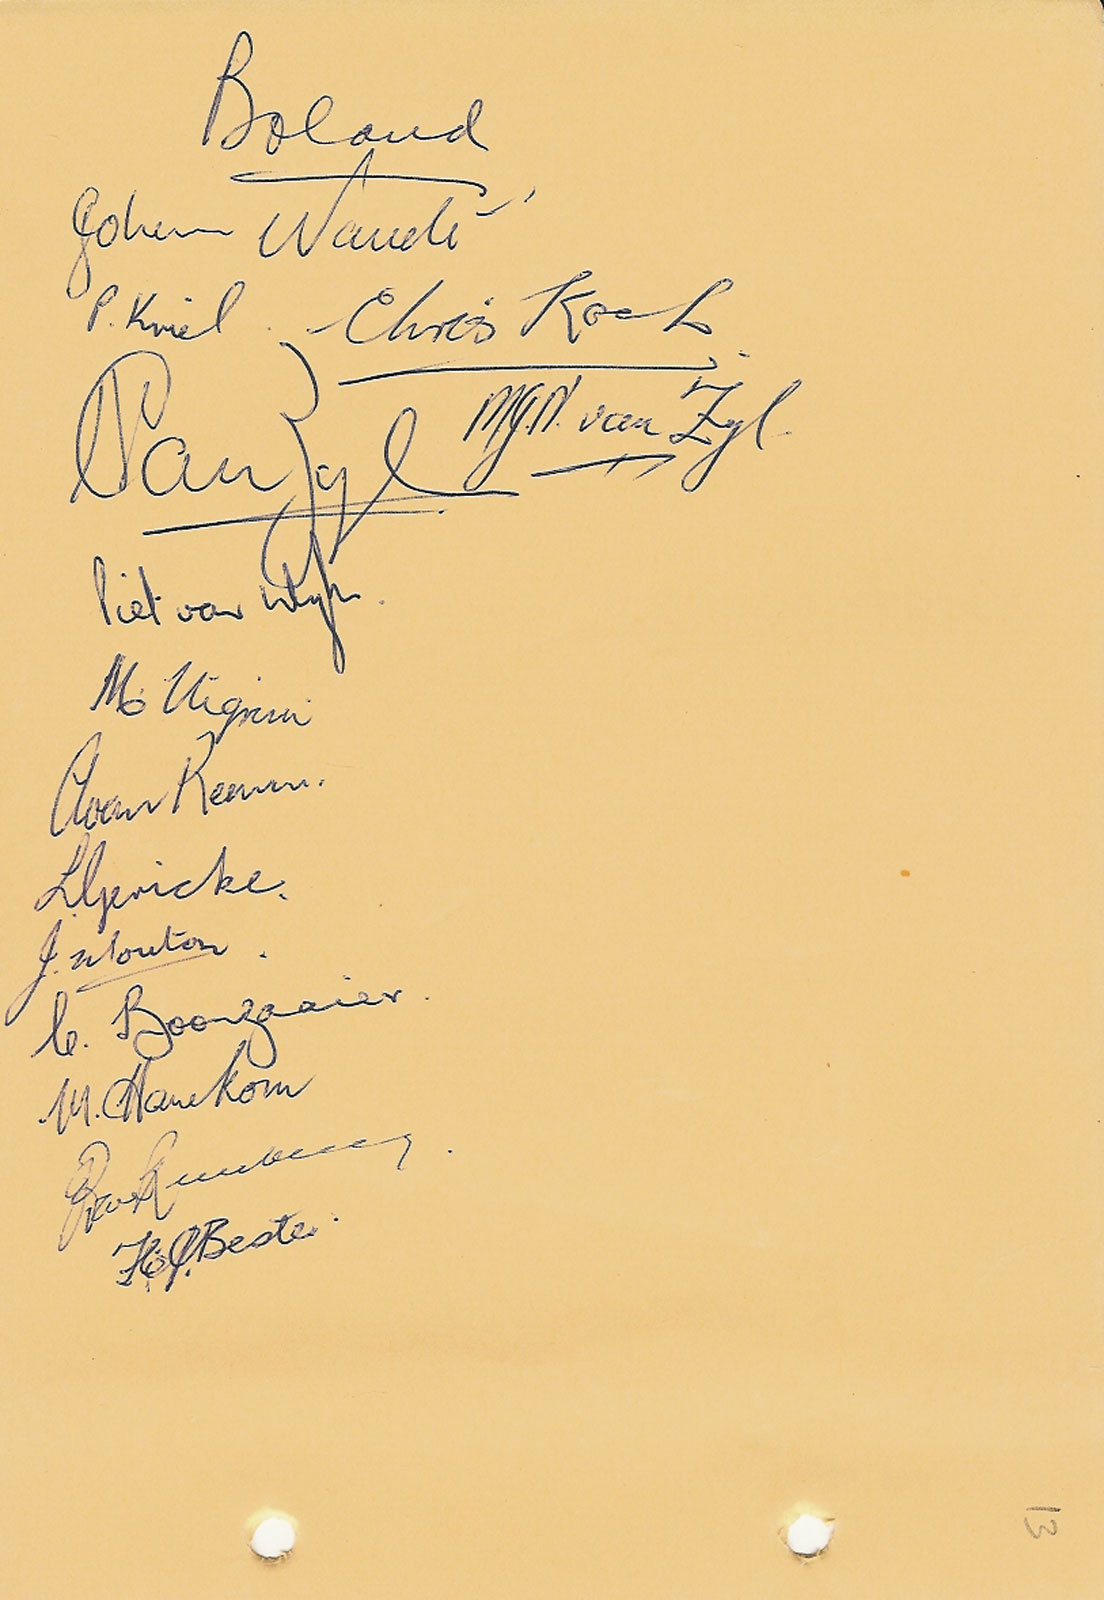 Boland
Johann
P. Kriel
Chris Koch
M.J.N. van Zyl
van Zyl
Piet van Wyk
Mo
van
L. Gericke.
J. Mouton.
C. Boonzaaier.
M. Hanekom
H.J. Bester.
13